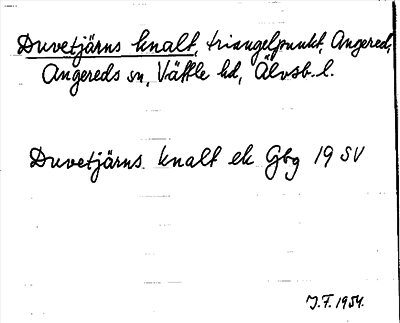 Duvetjärns knalt, triangelpunkt, Angered,
Angereds sn, Vättle hd, Älvsb. l.
Duvetjärns knalt ek Gbg 19 SV
J.F. 1954.